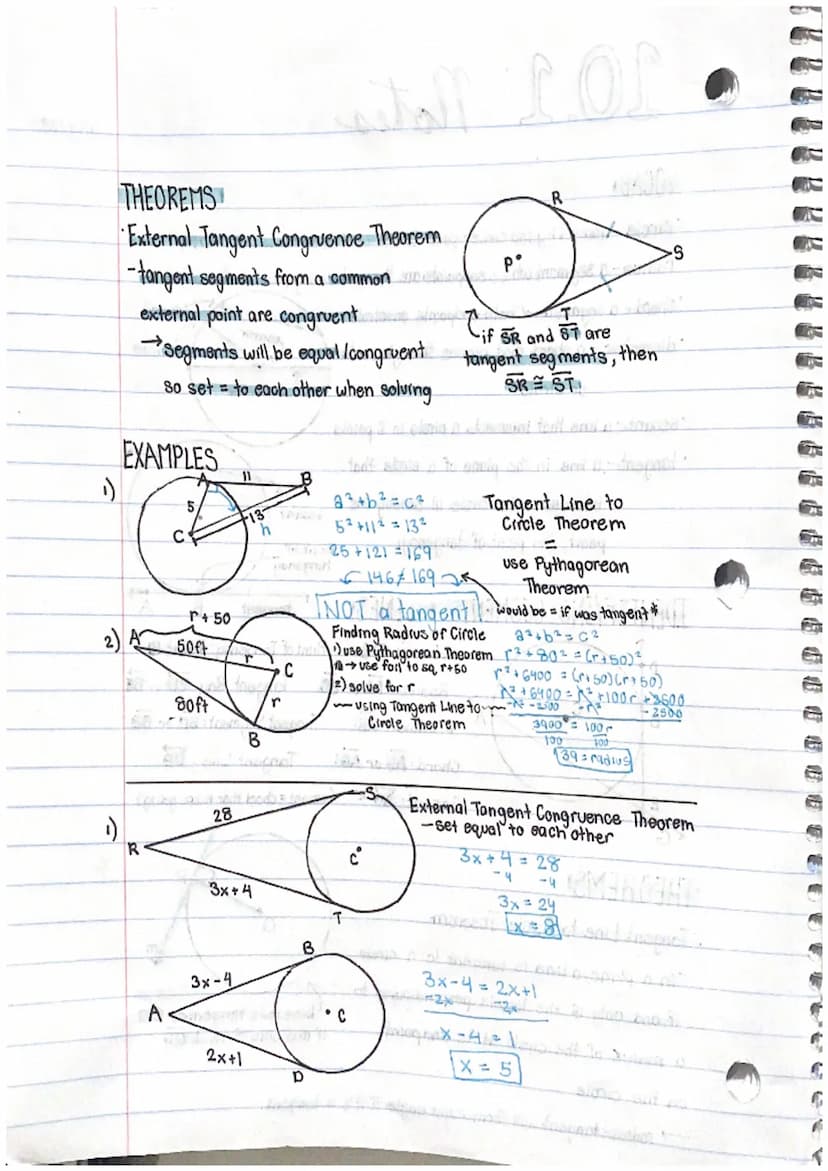 THEOREMS
·External Tangent Congruence Theorem
-tangent segments from a common
external point are congruent
→segments will be equal/congruent
so set = to each other when solving
R
P
S
T
if SR and ST are
tangent segments, then
SR ≅ ST
EXAMPLES
1)
A
11
B
5
C
13
h
a²+b²=c²
5²+11²=13²
25+121=169
146≠169
NOT a tangent
Tangent Line to
Circle Theorem
=
use Pythagorean
Theorem
would be = if was tangent*
2)
r+50
A
50ft
r
C
80ft
r
B
Finding Radius of Circle
1) use Pythagorean Theorem
→use foil to sq. r+50
2) solve for r
using Tangent Line to
Circle Theorem
a²+b²=c²
r²+80²=(r+50)²
r²+6400=(r+50)(r+50)
r²+6400=r²+100r+2500
-r² -2500 -r² -2500
3900=100r
100 100
39=radius
1)
R
28
S
C
3x+4
T
External Tangent Congruence Theorem
-set equal to each other
3x+4=28
-4 -4
3x=24
x=8
B
3x-4
A
C
2x+1
D
3x-4=2x+1
-2x -2x
x-4=1
x=5